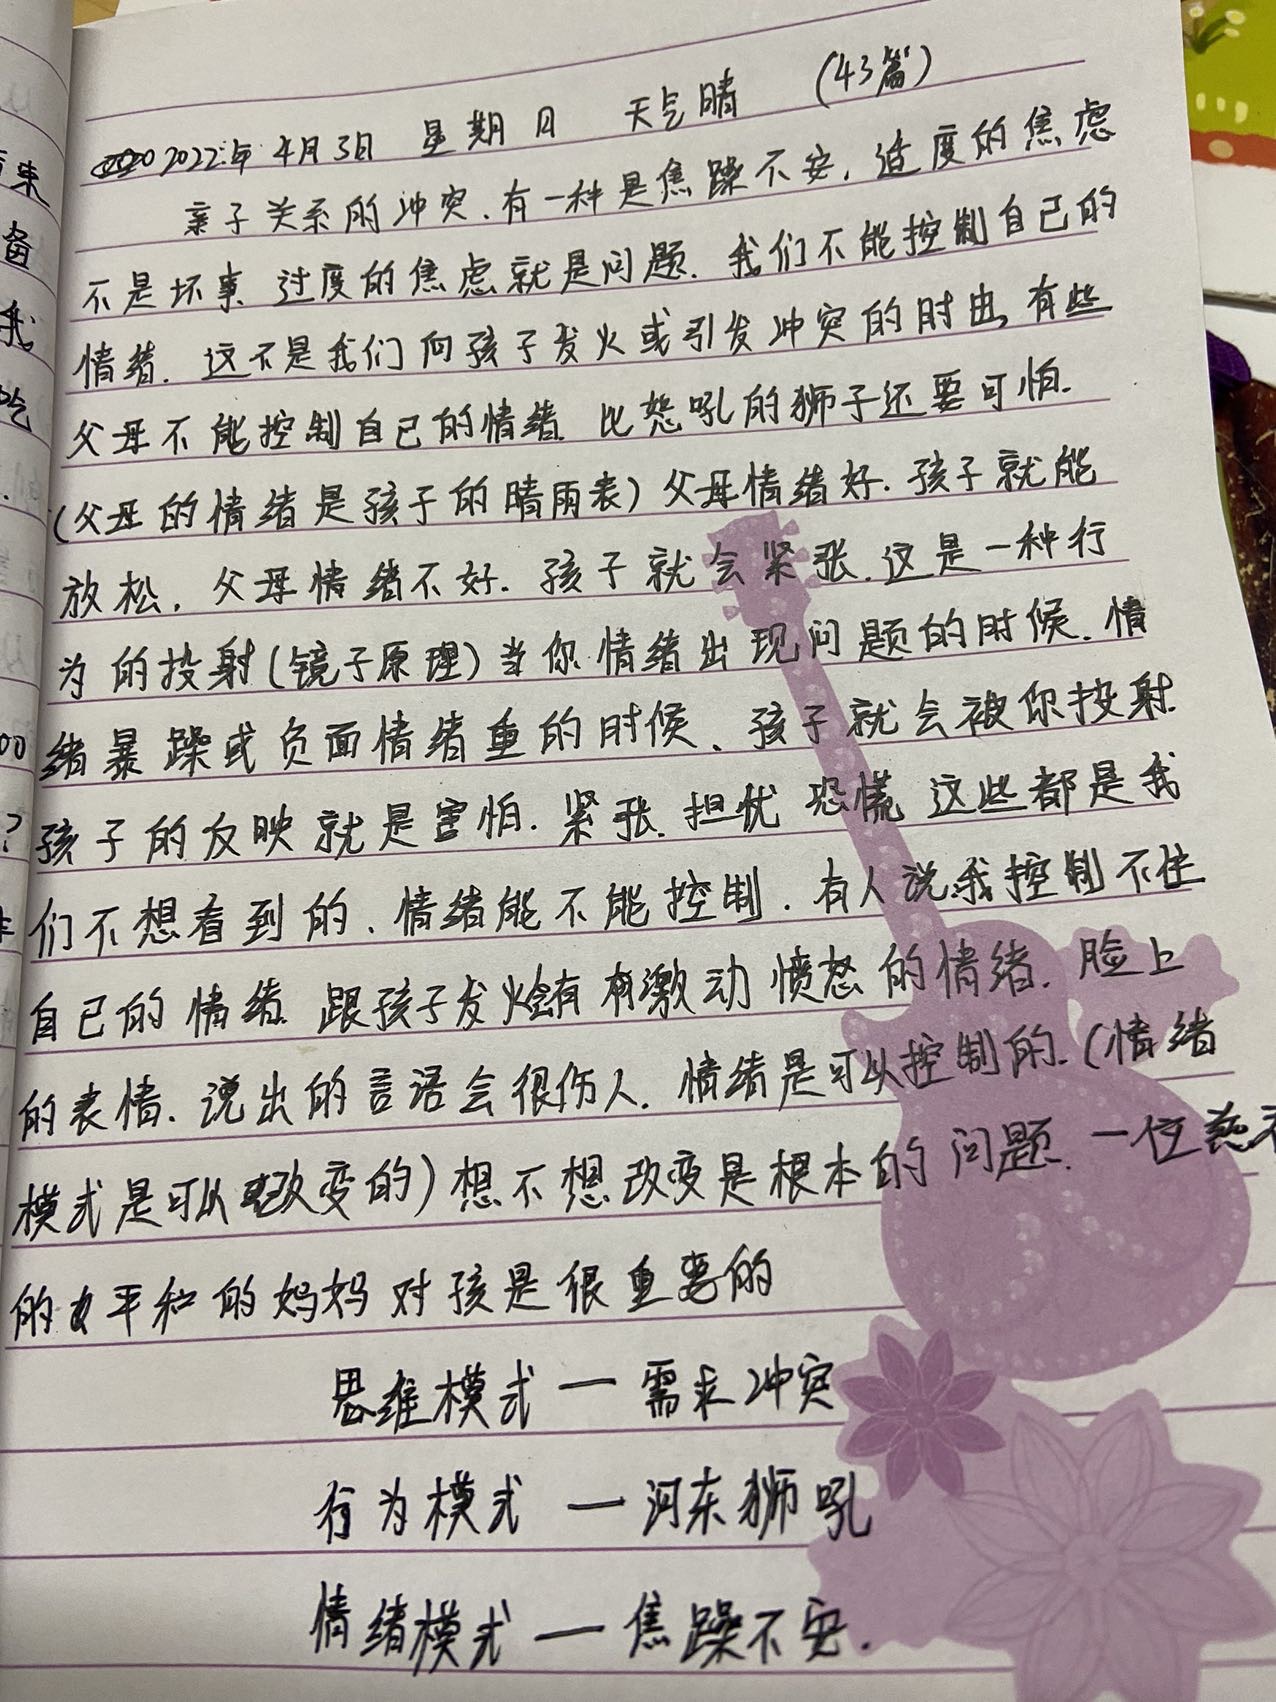 2022年4月3日 星期日 天气晴 (43篇)
亲子关系的冲突、有一种是焦躁不安，适度的焦虑
不是坏事 过度的焦虑就是问题. 我们不能控制自己的
情绪. 这不是我们向孩子发火或引发冲突的时由, 有些
父母不能控制自己的情绪 比怒吼的狮子还要可怕.
(父母的情绪是孩子的晴雨表) 父母情绪好. 孩子就能
放松, 父母情绪不好. 孩子就会紧张. 这是一种行
为的投射(镜子原理) 当你情绪出现问题的时候. 情
绪暴躁或负面情绪重的时候、孩子就会被你投射.
孩子的反映就是害怕. 紧张. 担忧 恐慌 这些都是我
们不想看到的、情绪能不能控制. 有人说我控制不住
自己的情绪 跟孩子发火会有激动愤怒的情绪. 脸上
的表情. 说出的言语会很伤人. 情绪是可以控制的. (情绪
模式是可以改变的) 想不想改变是根本的问题. 一位慈
的 平和的妈妈对孩是很重要的
思维模式 — 需求冲突
行为模式 — 河东狮吼
情绪模式 — 焦躁不安.
来
备
我
吃
00
?